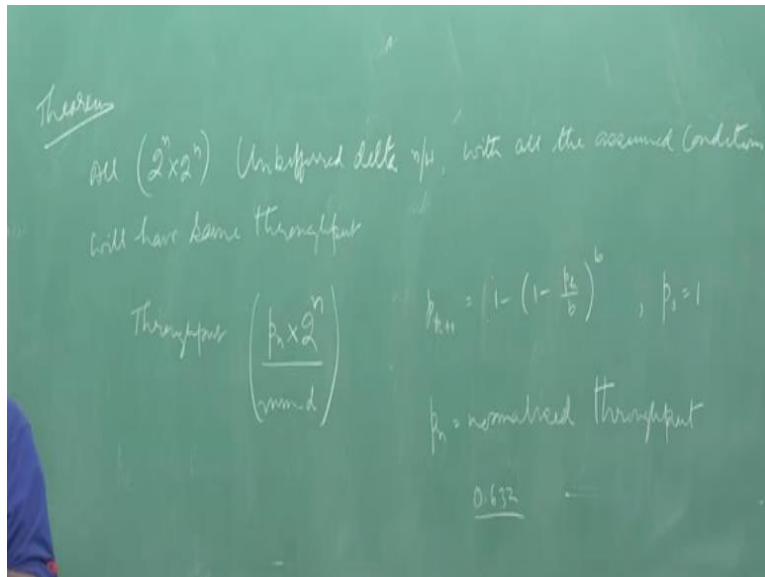 Theorem
All (2^n × 2^n) Unbuffered delta n/w, with all the assumed Conditions
will have same throughput
Throughput (p_n × 2^n / )
p_{k+1} = 1 - (1 - p_k/b)^b , p_0 = 1
p_n = normalised throughput
0.632